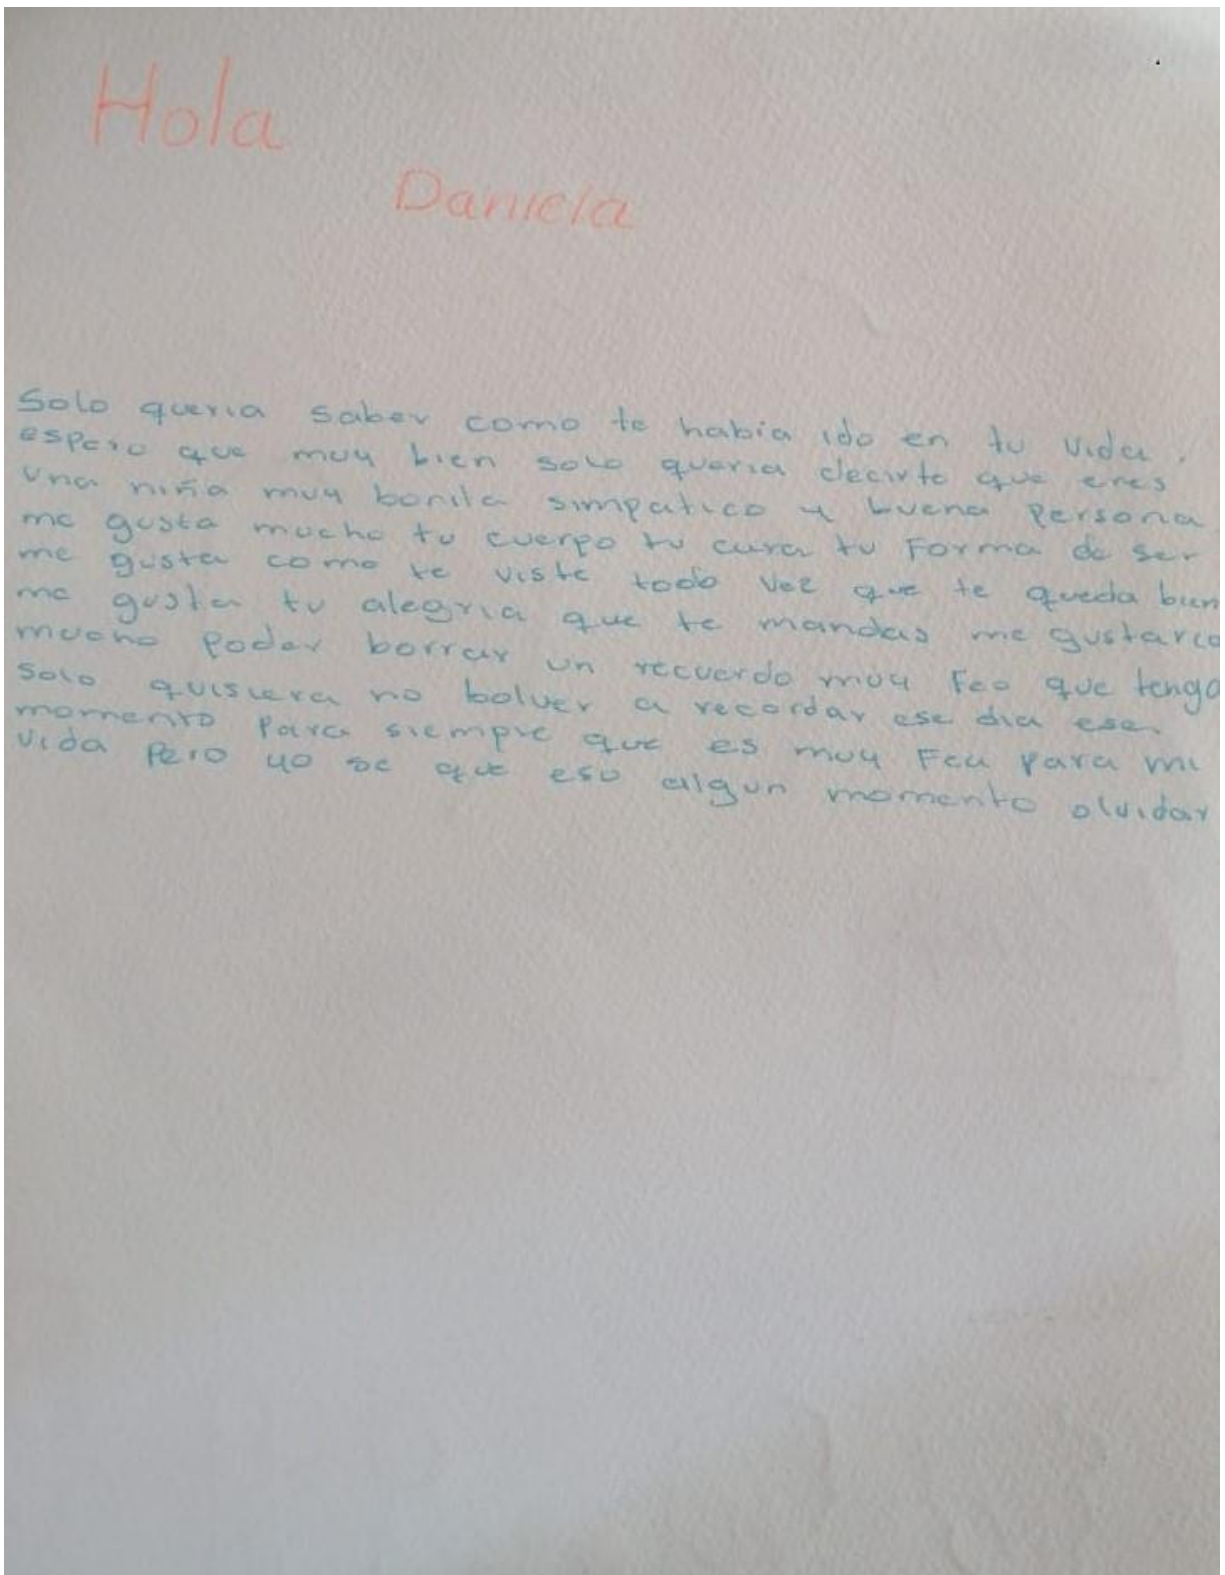 Hola
Daniela
Solo queria saber como te había ido en tu vida.
espero que muy bien solo queria decirte que eres
una niña muy bonita simpatico y buena persona
me gusta mucho tu cuerpo tu cara tu Forma de ser
me gusta como te viste todo vez que te queda bien
me gusta tu alegria que te mandas me gustaria
mucho poder borrar un recuerdo muy Feo que tengo
Solo quisiera no bolver a recordar ese dia ese
momento Para siempre que es muy Feu para mi
vida Pero yo se que eso algun momento olvidar